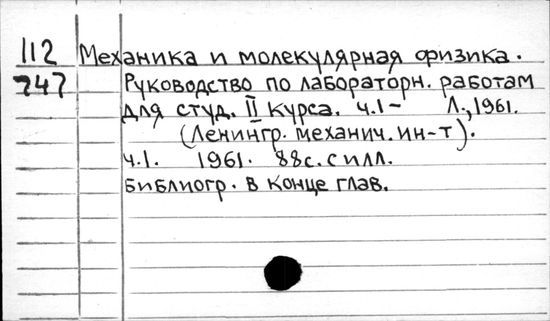 112 Механика и молекулярная физика.
747 Руководство по лабораторн. работам
для студ. II курса. ч.1- Л., 1961.
(Ленингр. механич. ин-т).
ч.1. 1961. 88с. с илл.
Библиогр. в конце глав.